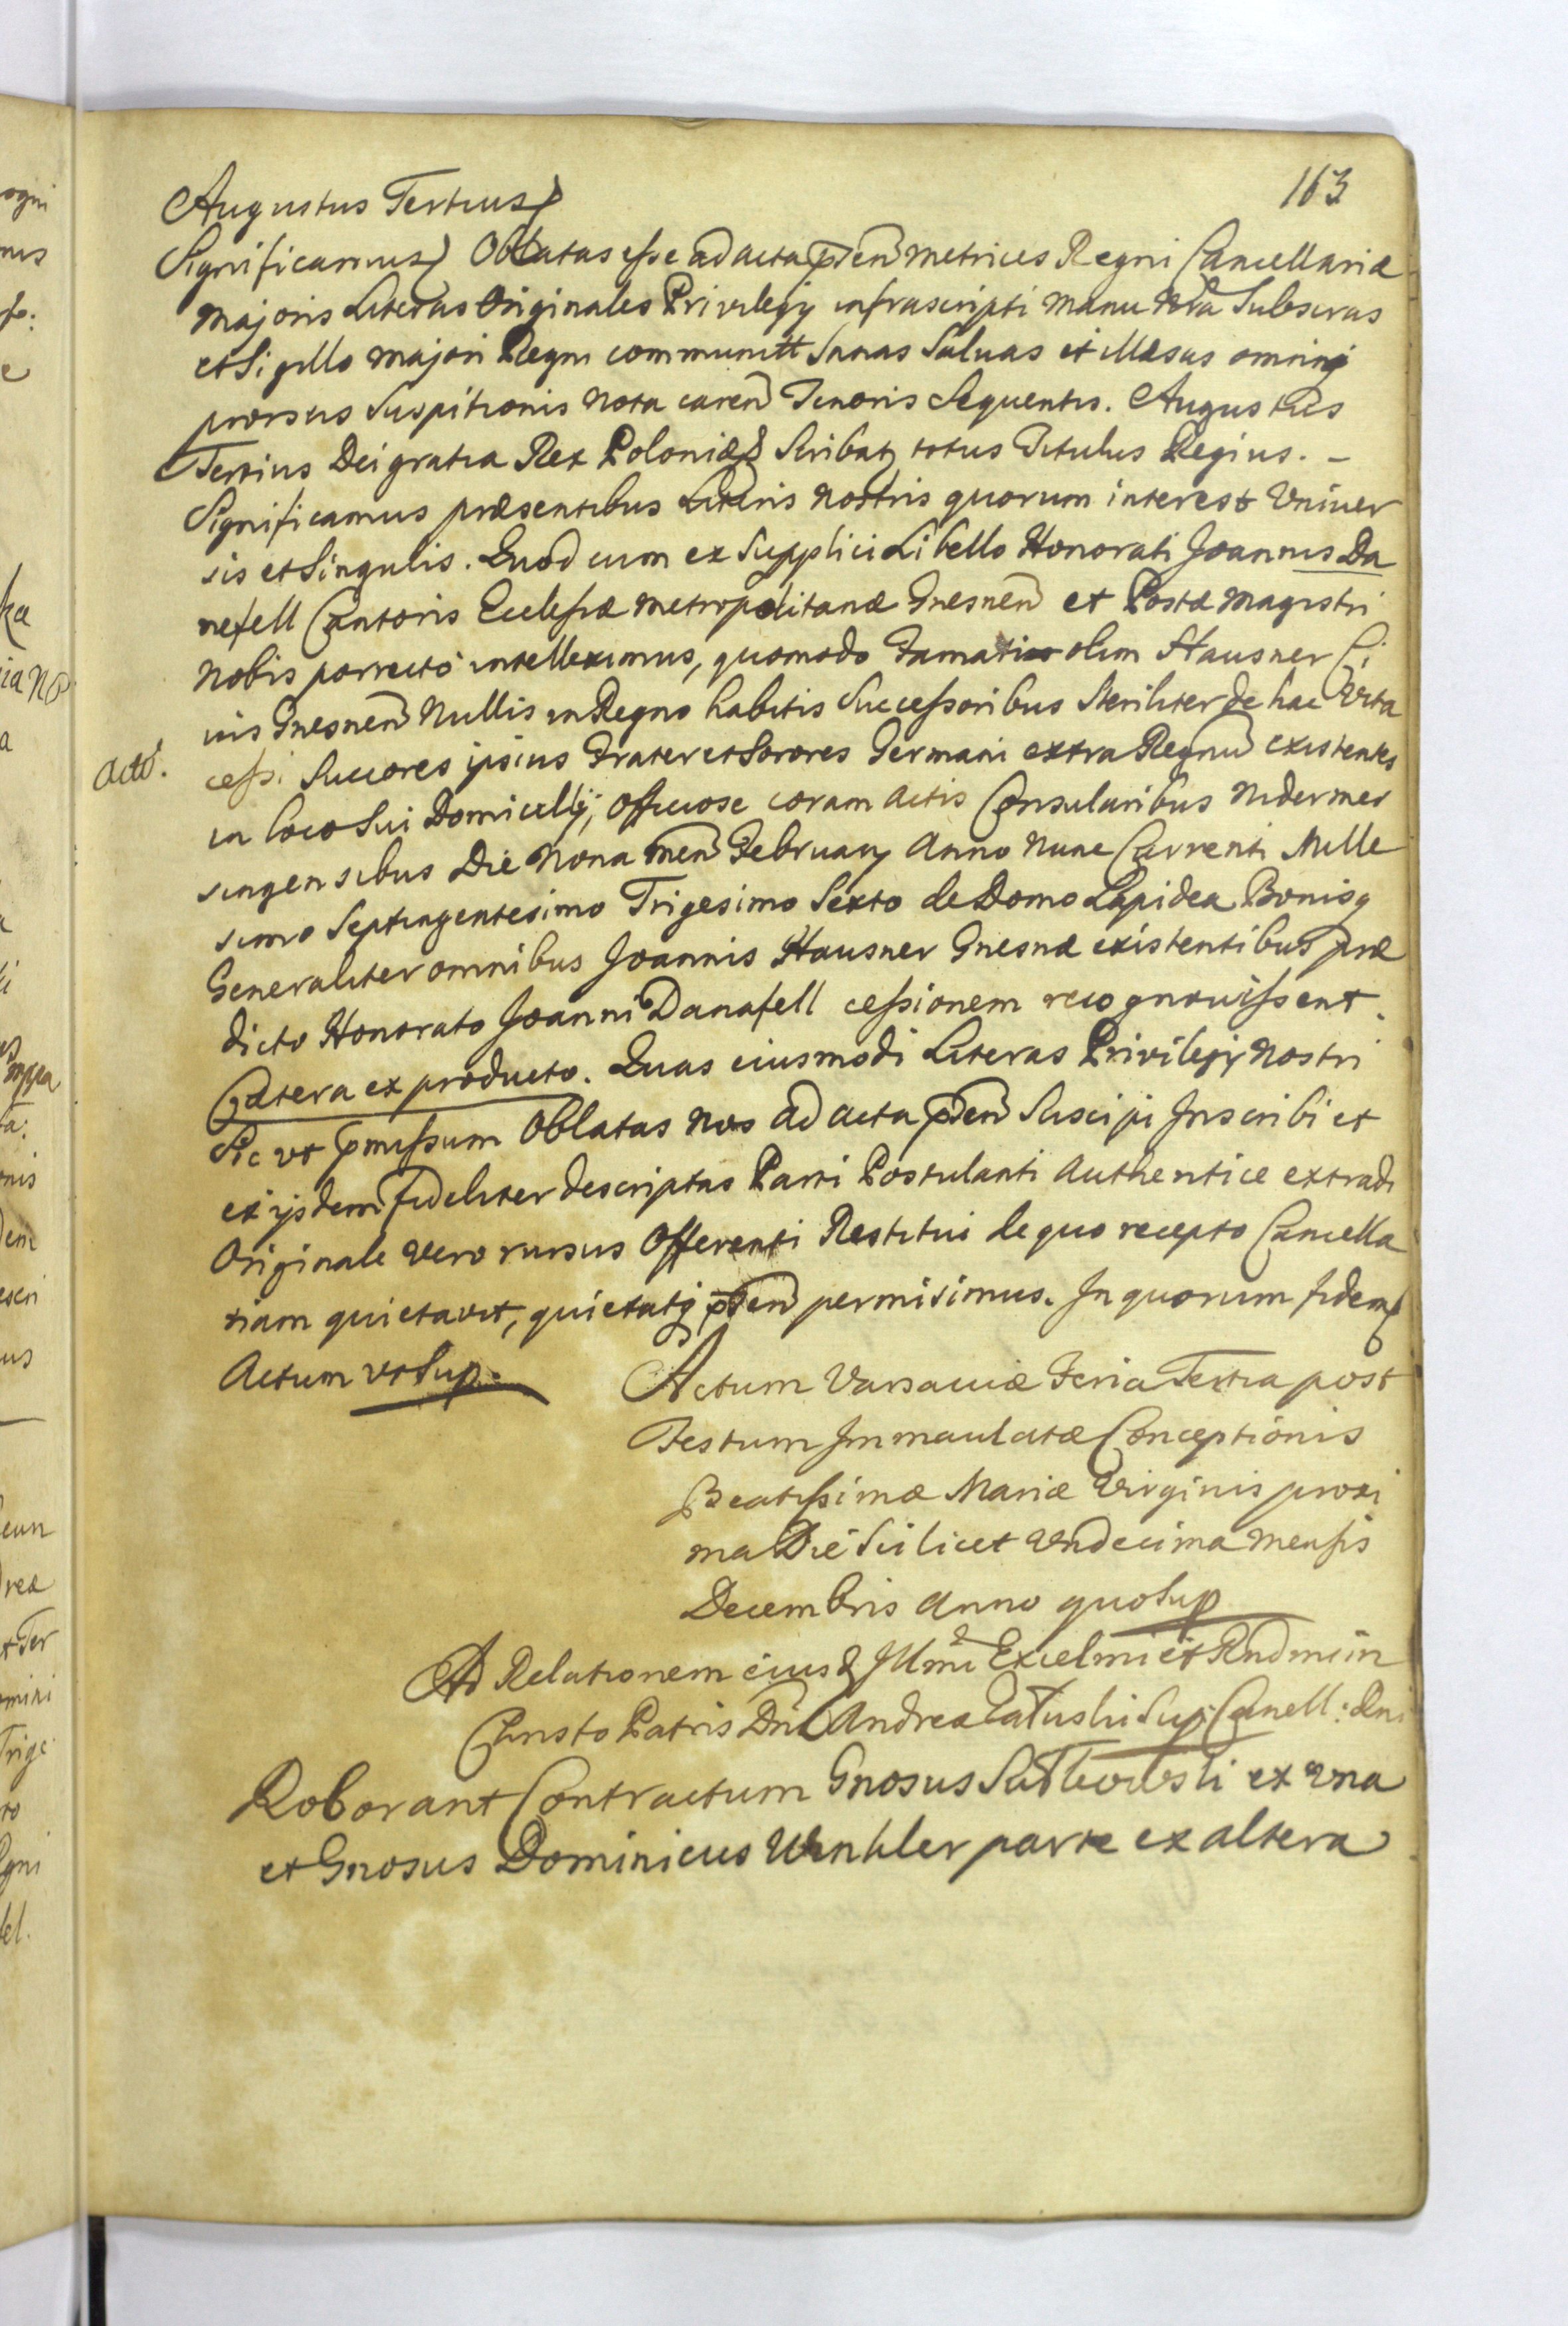 163
Augustus Tertius
Significamus Oblatas esse ad acta pñtẽ Metrices Regni Cancellariæ
Majoris Literas Originales Privilegij infrascripti manu Nr̃a Subscras
et Sigillo majori Regni communitt Sanas Saluas et illæsas omniq
prorsus Suspitionis nota careñ Tenoris Sequentis. Augustus
Tertius Dei gratia Rex Poloniæ & Scribatq totus Titulus Regius. –
Significamus præsentibus Literis Nostris quorum interest Vniuer
sis et Singulis. Quod cum ex Supplici Libello Honorati Joannis Da
nefell Cantoris Ecclesiæ Metropolitanæ Gnesneñ et Postæ Magistri
Nobis porrecto intelleximus, quomodo Famati olim Hausner Ci
uis Gnesneñ Nullis in Regno habitis Successoribus Steriliter de hac Vita
Acto.
cessi Succores ipsius Frater et Sorores Germani extra Regnũ existentes
in loco Sui Domicilij, officiose coram Actis Consularibus Nidermer
singensibus Die Nona Meñ February Anno Nunc Currenti Mille
simo Septingentesimo Trigesimo Sexto de Domo Lapidea Bonisq
Generaliter omnibus Joannis Hausner Gnesnæ existentibus præ
dicto Honorato Joanni Danafell cessionem recognouissent.
Cætera ex producto. Quas eiusmodi Literas Privilegij Nostri
Sic vt pmissum Oblatas Nos ad acta pñtẽ Suscipi Inscribi et
ex ijsdem fideliter descriptas Parti Postulanti Authentice extradi
Originale vero rursus Offerenti Restitui de quo recepto Cancella
riam quietavit, quietatq pñtẽ permisimus. In quorum fidem
Actum vt Sup.
Actum Varsauiæ Feria Tertia post
Festum Immaculatæ Conceptionis
Beatissimæ Mariæ Virginis proxi
ma Die Scilicet Vndecima Mensis
Decembris Anno quo Sup
Ad Relationem eius & Illmi Excelmi et Rndmi in
Christo Patris Dñi Andreæ Załuski Sup: Cancell: Rni
Roborant Contractum Gnosus ex vna
et Gnosus Dominicus Winkler parte ex altera